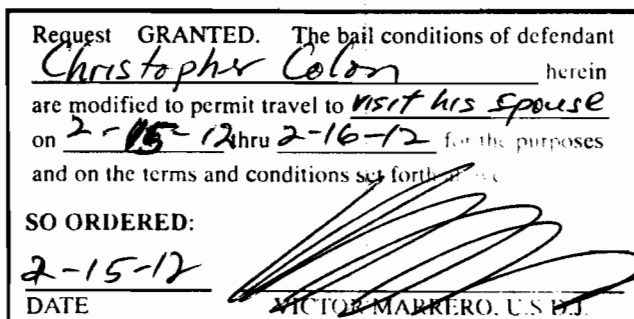 Request GRANTED. The bail conditions of defendant
Christopher Colon herein
are modified to permit travel to visit his spouse
on 2-15-12 thru 2-16-12 for the purposes
and on the terms and conditions set forth above
SO ORDERED:
2-15-12
DATE VICTOR MARRERO, U.S.D.J.